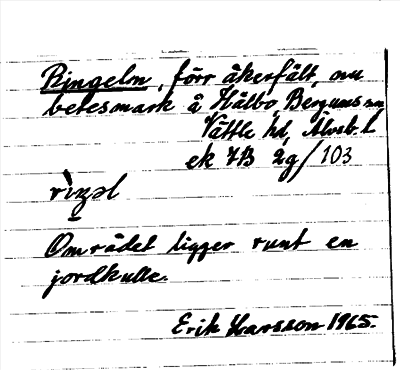 Ringeln, förr åkerfält, nu
betesmark å Hålbo, Bergums sn
Vättle hd, Älvsb. l.
ek 7B 2g/103
rìŋəl
Området ligger runt en
jordkulle.
Erik Larsson 1965.